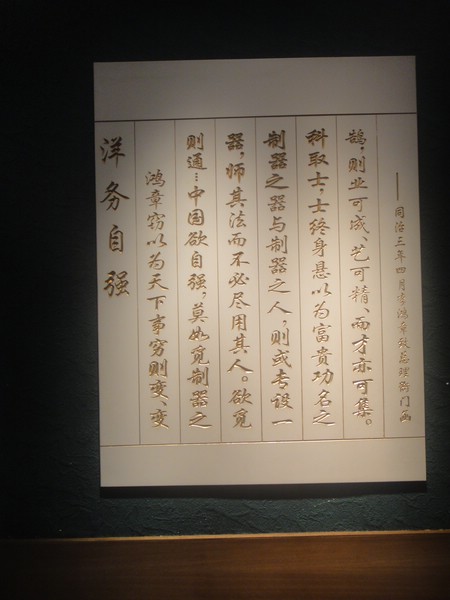 洋务自强
鸿章窃以为天下事穷则变、变
则通…中国欲自强，莫如觅制器之
器，师其法而不必尽用其人。欲觅
制器之器与制器之人，则或专设一
科取士，士终身悬以为富贵功名之
鹄，则业可成、艺可精、而才亦可集。
——同治三年四月李鸿章致总理衙门函